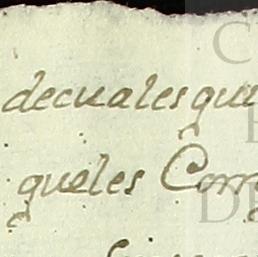 decualesqui
queles Corr